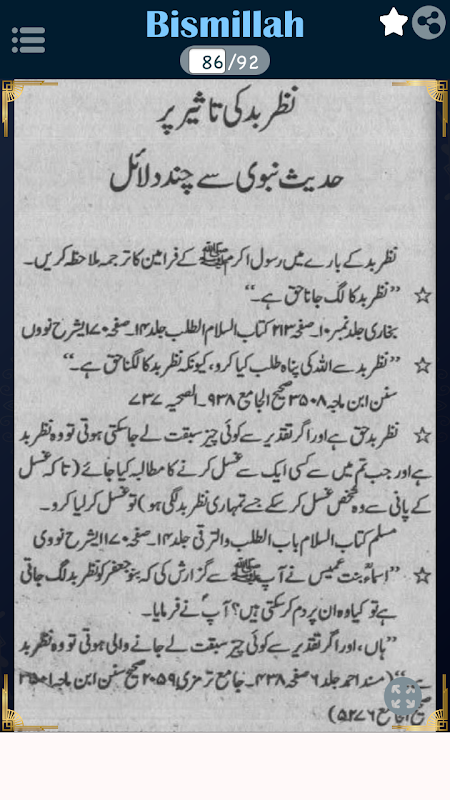 Bismillah
86/92
نظر بد کی تاثیر پر
حدیث نبوی سے چند دلائل
نظر بد کے بارے میں رسول اکرم ﷺ کے فرامین کا ترجمہ ملاحظہ کریں۔
☆ ”نظر بد کا لگ جانا حق ہے۔“
بخاری جلد نمبر ۱۰۔ صفحہ ۲۱۳ کتاب السلام الطلب جلد ۱۴۔ صفحہ ۱۷۰ ایشرح نووں
☆ ”نظر بد سے اللہ کی پناہ طلب کیا کرو، کیونکہ نظر بد کا لگنا حق ہے۔“
سنن ابن ماجہ ۳۵۰۸ صحیح الجامع ۹۳۸۔ الصحیہ ۷۳۷
☆ نظر بد حق ہے اور اگر تقدیر سے کوئی چیز سبقت لے جا سکتی ہوتی تو وہ نظر بد
ہے اور جب تم میں سے کسی ایک سے غسل کرنے کا مطالبہ کیا جائے (تا کہ غسل
کے پانی سے وہ شخص غسل کر سکے جسے تمہاری نظر بد لگی ہو) تو غسل کر لیا کرو۔
مسلم کتاب السلام باب الطلب والترقی جلد ۱۴۔ صفحہ ۱۷۰ ایشرح نووی
☆ ”اسماءؓ بنت عمیس نے آپ ﷺ سے گزارش کی کہ بنو جعفر کو نظر بد لگ جاتی
ہے تو کیا وہ ان پر دم کر سکتی ہیں؟ آپؐ نے فرمایا۔
”ہاں، اور اگر تقدیر سے کوئی چیز سبقت لے جانے والی ہوتی تو وہ نظر بد
ہے“ (مسند احمد جلد ۶ صفحہ ۴۳۸۔ جامع ترمزی ۲۰۵۹ صحیح سنن ابن ماجہ ۳۵۰۱
صحیح الجامع ۵۲۷۶)